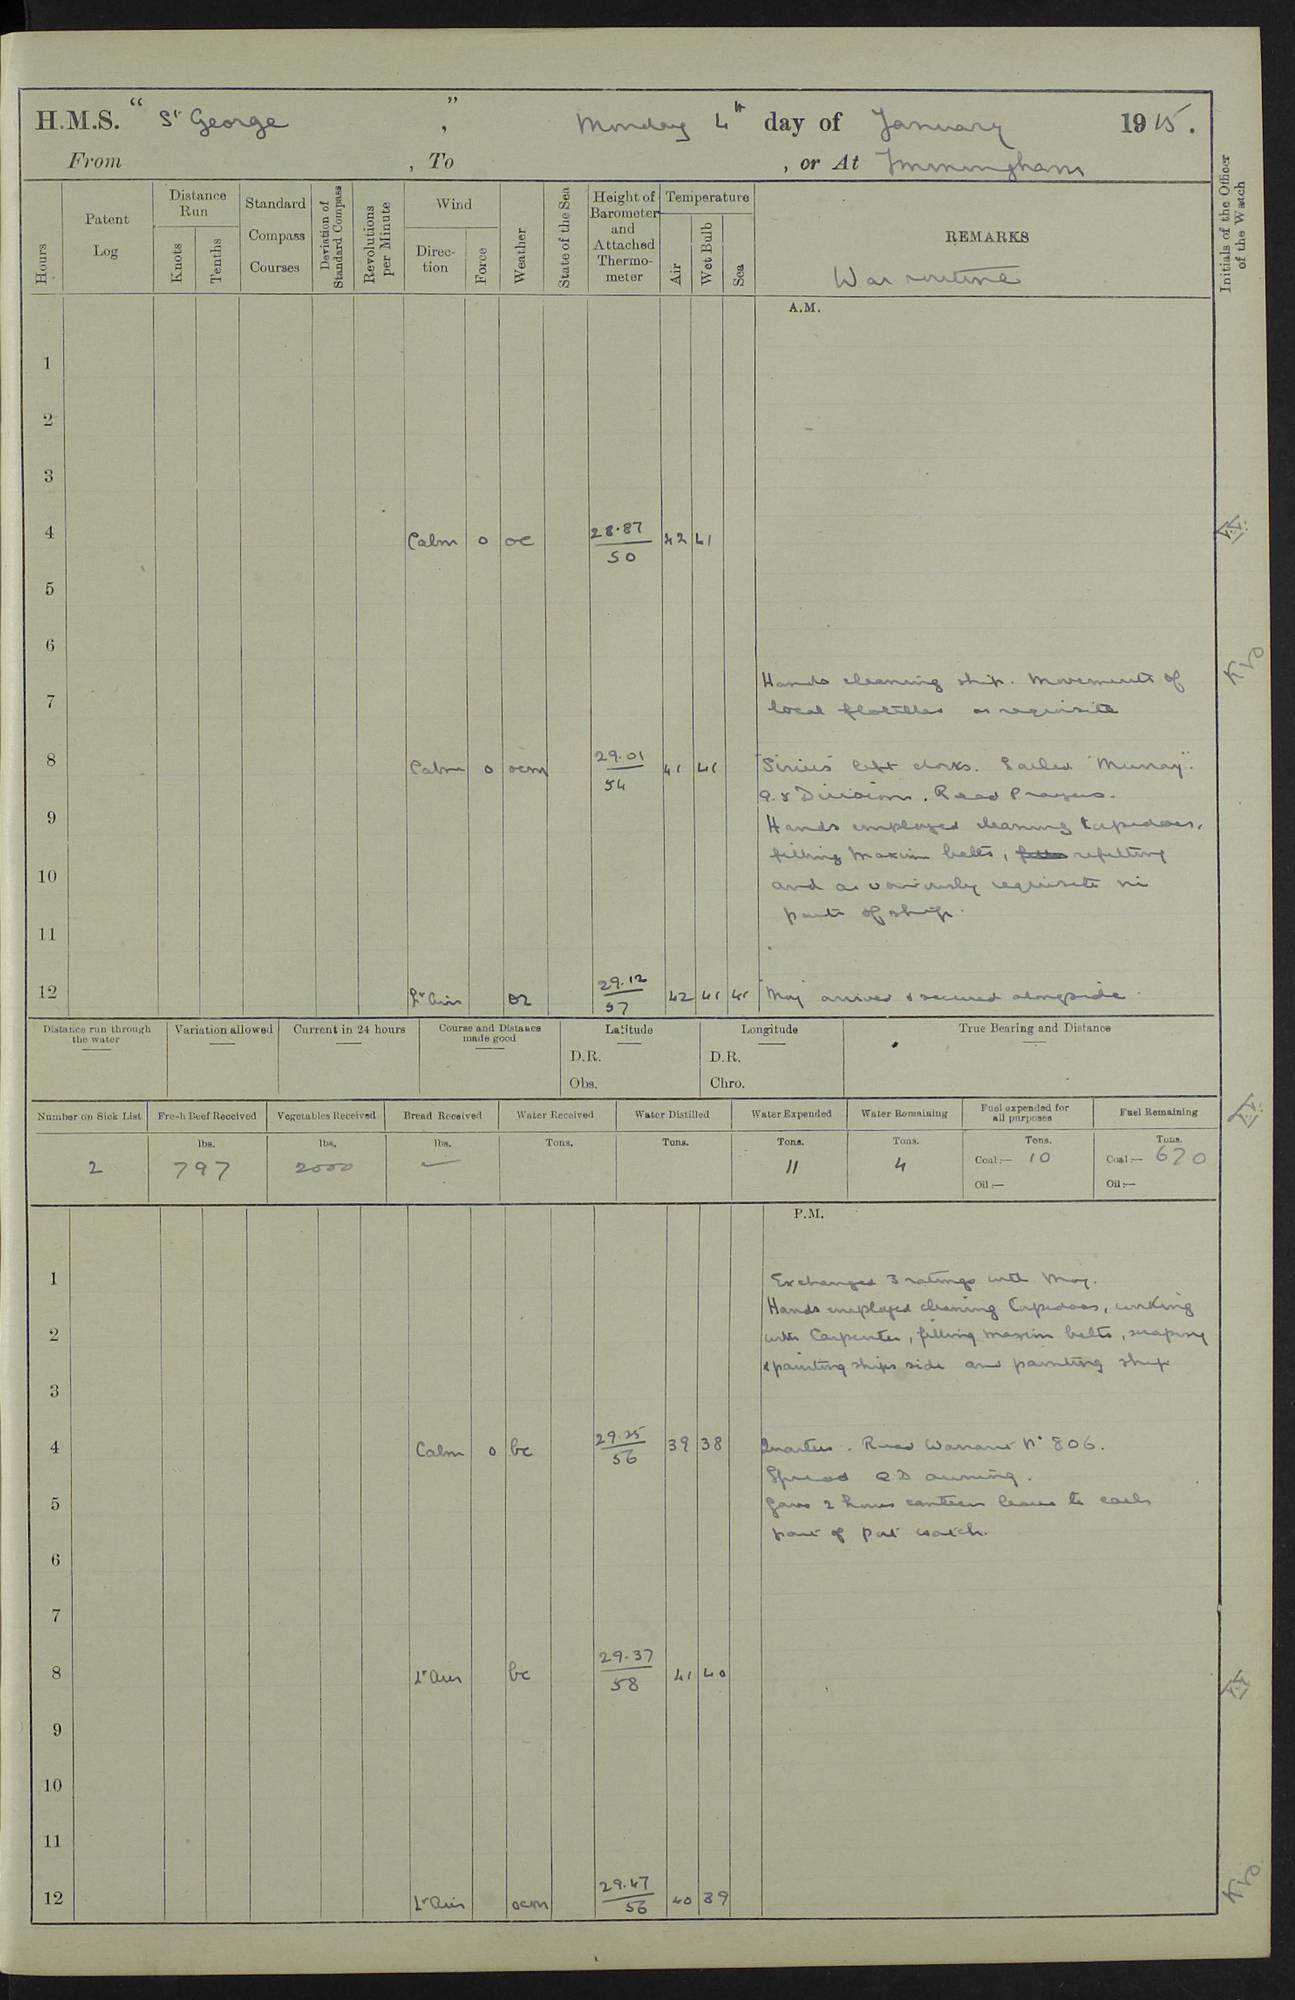 H.M.S. "St George", Monday 4th day of January 1915.
From , To , or At Immingham
Hours
Patent Log
Distance Run
Knots
Tenths
Standard Compass Courses
Deviation of Standard Compass
Revolutions per Minute
Wind
Direction
Force
Weather
State of the Sea
Height of Barometer and Attached Thermometer
Temperature
Air
Wet Bulb
Sea
REMARKS
War routine
Initials of the Officer of the Watch
A.M.
1
2
3
4 Calm 0 oc 28.87/50 42 41
5
6
Hands cleaning ship. Movements of
7
local flotillas as requisite
8 Calm 0 ocm 29.01/54 41 41 "Sirius" left docks. Sailed "Murray".
9.5 Divisions. Read Prayers.
9
Hands employed cleaning torpedoes,
filling Maxim belts, refitting
10
and as variously requisite in
parts of ship.
11
12 Lt Airs 29.12/57 42 41 41 "Moy" arrived & secured alongside.
Distance run through the water
Variation allowed
Current in 24 hours
Course and Distance made good
Latitude
D.R.
Obs.
Longitude
D.R.
Chro.
True Bearing and Distance
Number on Sick List
Fresh Beef Received
Vegetables Received
Bread Received
Water Received
Water Distilled
Water Expended
Water Remaining
Fuel expended for all purposes
Fuel Remaining
lbs. lbs. lbs. Tons. Tons. Tons. Tons. Tons. Tons.
2 797 2000 — 11 4 Coal:— 10 Coal:— 670
Oil:— Oil:—
P.M.
1 Exchanged 3 ratings with Moy.
Hands employed cleaning Torpedoes, working
2 with Carpenter, filling Maxim belts, scraping
& painting ships side and painting ship
3
4 Calm 0 bc 29.25/56 39 38 Quarters. Read Warrant No 806.
Spread QD awning.
5 Gave 2 hours canteen leave to each
part of Port watch.
6
7
8 Lt Airs bc 29.37/58 41 40
9
10
11
12 Lt Airs ocm 29.47/56 40 39